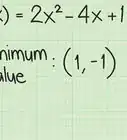 ) = 2x² - 4x + 1
nimum : (1, -1)
alue